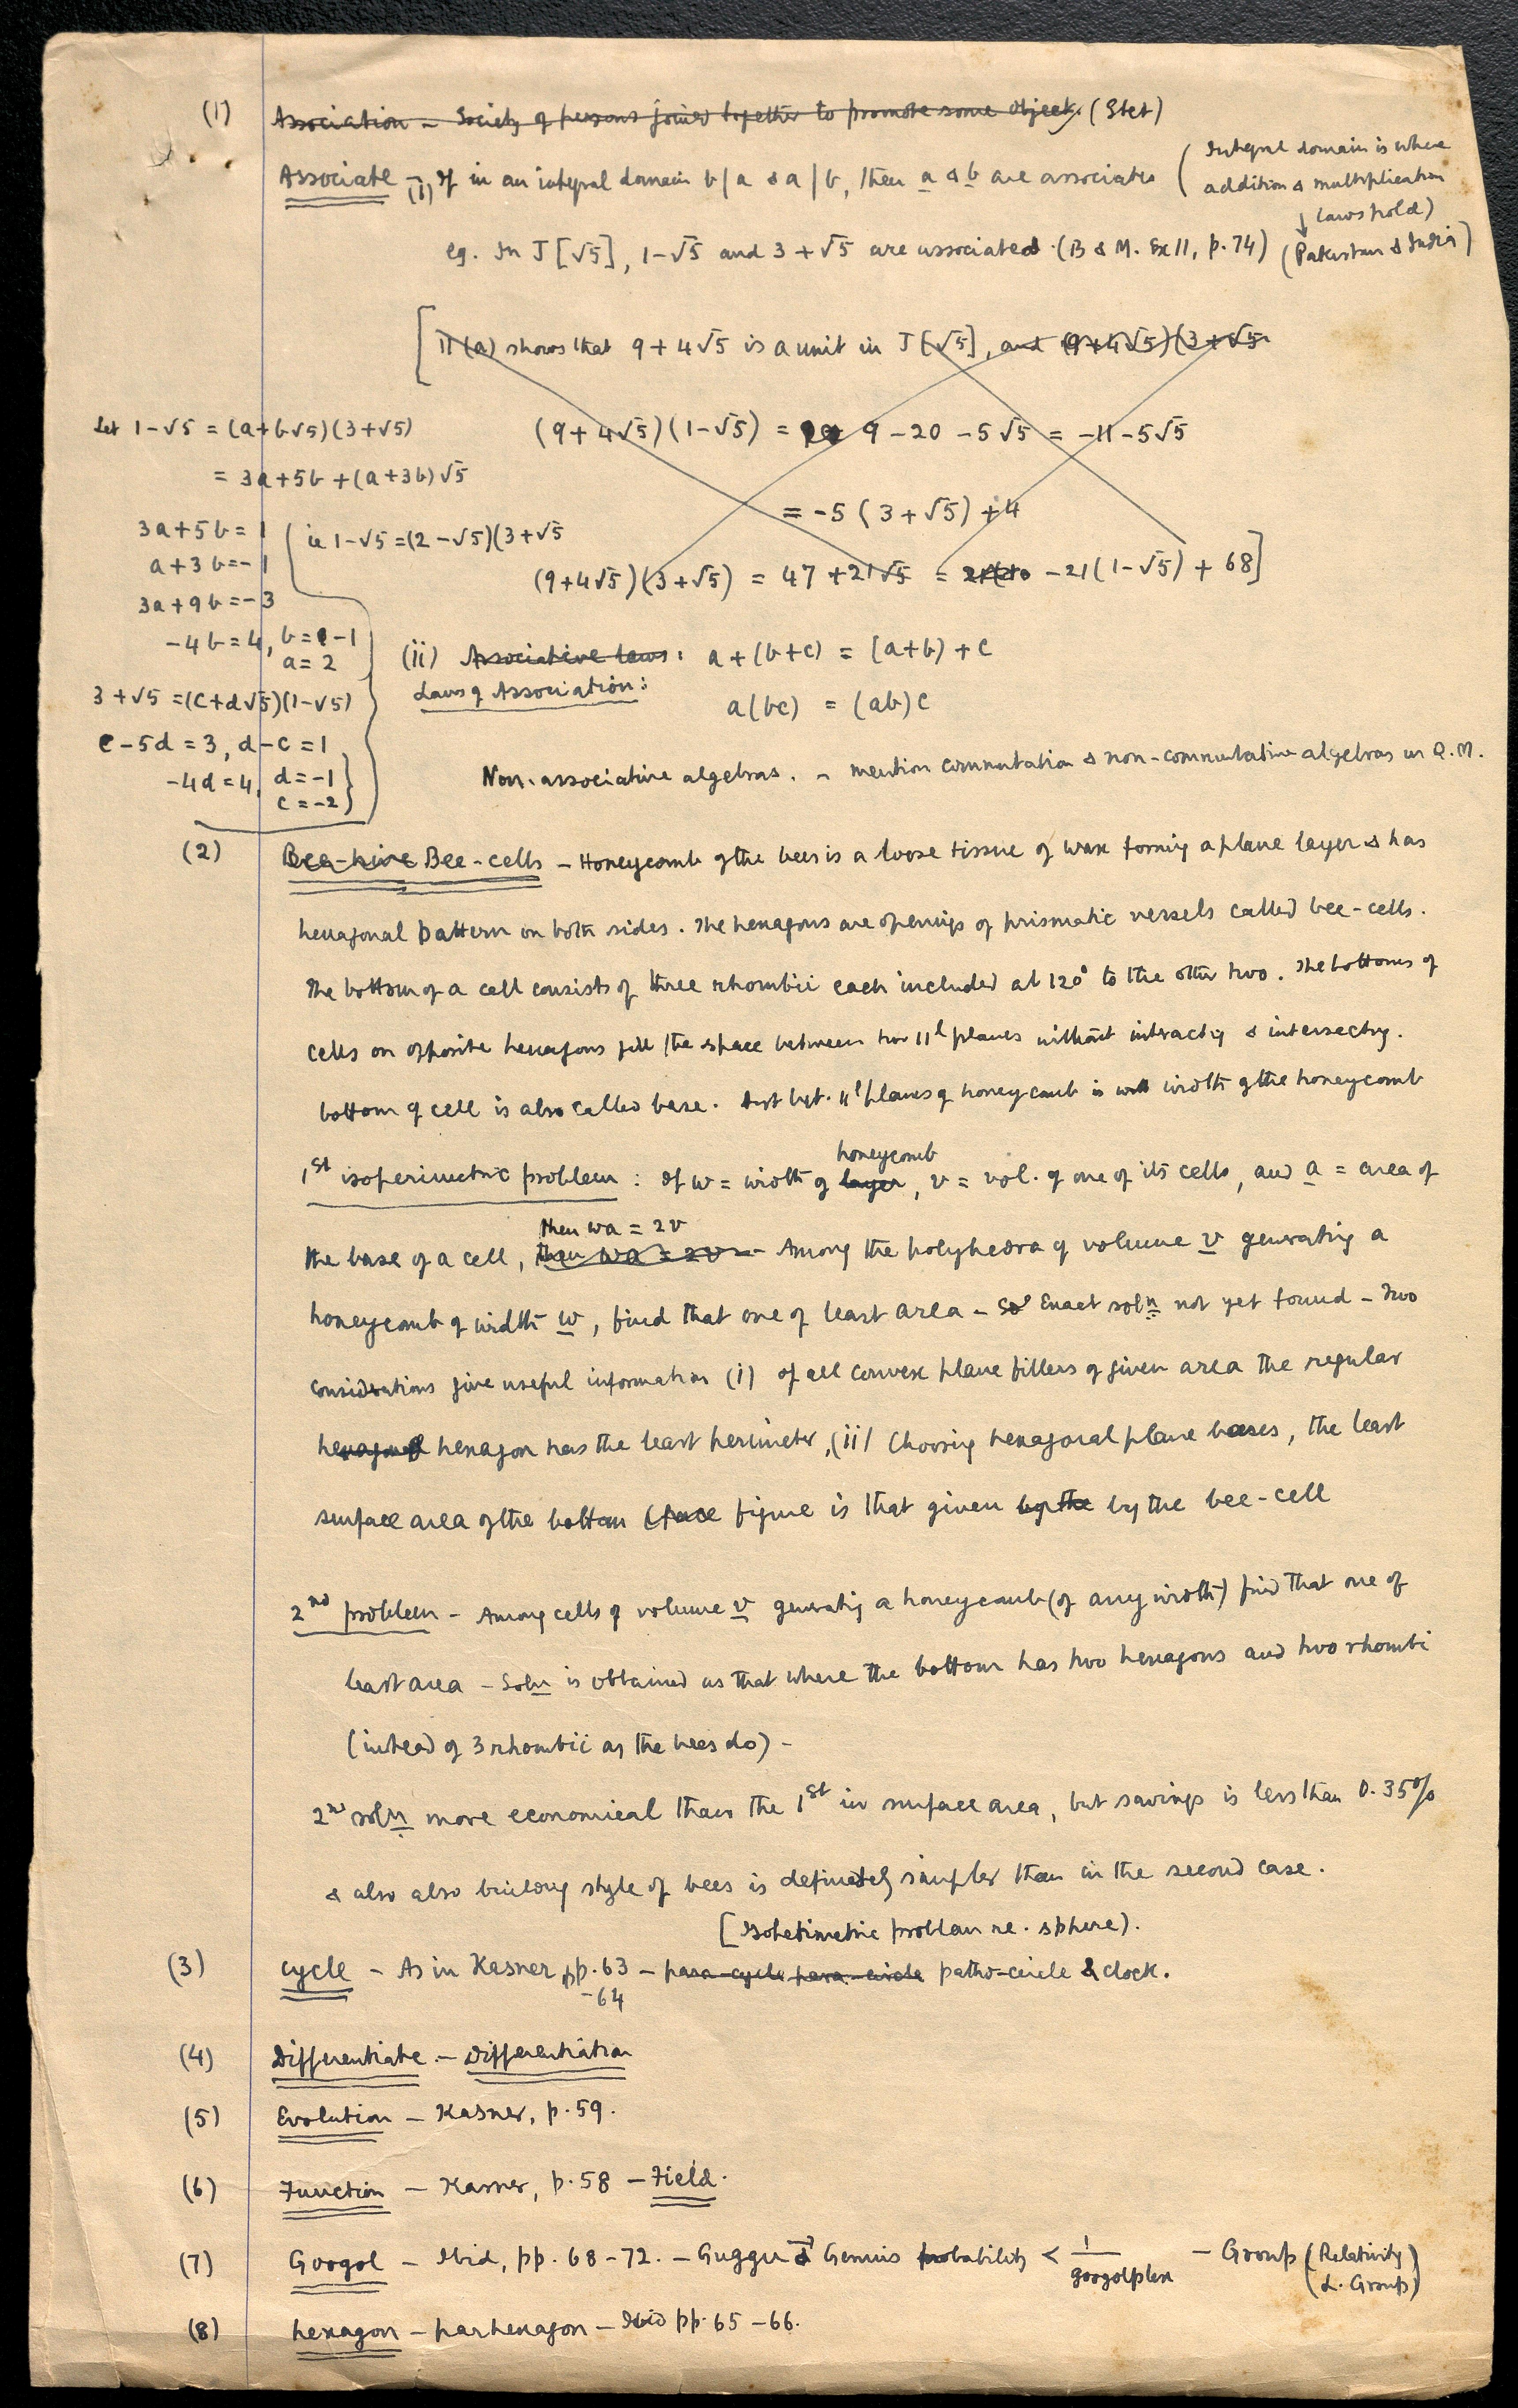 (1) Association – Society of persons joined together to promote some object. (Stet)
Associate – (i) If in an integral domain b|a & a|b, then a & b are associates (Integral domain is where
addition & multiplication
laws hold)
eg. In J[√5], 1-√5 and 3+√5 are associated. (B & M. Ex 11, p. 74) (Pakistan & India)
[11(a) shows that 9+4√5 is a unit in J[√5], and (9+4√5)(3+√5
Let 1-√5 = (a+b√5)(3+√5)
(9+4√5)(1-√5) = 9-20-5√5 = -11-5√5
= 3a+5b+(a+3b)√5
= -5(3+√5)+4
3a+5b=1
a+3b=-1
ie 1-√5=(2-√5)(3+√5
(9+4√5)(3+√5) = 47+21√5 = -21(1-√5)+68]
3a+9b=-3
-4b=4, b=-1
a=2
(ii) Associative laws: a+(b+c) = (a+b)+c
Laws of Association:
3+√5=(c+d√5)(1-√5)
a(bc) = (ab)c
c-5d=3, d-c=1
-4d=4, d=-1
c=-2
Non-associative algebras. – mention commutation & non-commutative algebras in Q.M.
(2) Bee-hive Bee-cells – Honeycomb of the bees is a loose tissue of wax forming a plane layer & has
hexagonal pattern on both sides. The hexagons are openings of prismatic vessels called bee-cells.
The bottom of a cell consists of three rhombii each included at 120° to the other two. The bottoms of
cells on opposite hexagons fill the space between two 11l planes without interacting & intersecting.
bottom of cell is also called base. Dist bet. 11l planes of honeycomb is width of the honeycomb
1st isoperimetric problem: If w = width of layer honeycomb, v = vol. of one of its cells, and a = area of
the base of a cell, then wa = 2v then wa = 2v – Among the polyhedra of volume v generating a
honeycomb of width w, find that one of least area – So Exact soln not yet found – Two
considerations give useful information (i) of all convex plane fillers of given area the regular
hexagonal hexagon has the least perimeter, (ii) Choosing hexagonal plane bases, the least
surface area of the bottom face figure is that given by the by the bee-cell
2nd problem – Among cells of volume v generating a honeycomb (of any width) find that one of
least area – Soln is obtained as that where the bottom has two hexagons and two rhombi
(instead of 3 rhombii as the bees do) –
2nd soln more economical than the 1st in surface area, but savings is less than 0.35%
& also also building style of bees is definitely simpler than in the second case.
[Isoperimetric problem re. sphere).
(3) Cycle – As in Kasner pp. 63-64 – para-cycle para-circle patho-circle & clock.
(4) Differentiate – Differentiation
(5) Evolution – Kasner, p. 59.
(6) Function – Kasner, p. 58 – Field.
(7) Googol – Ibid, pp. 68-72. – Genius probability < 1/googolplex – Group (Relativity)
(L. Group)
(8) hexagon – parhexagon – Ibid pp. 65-66.